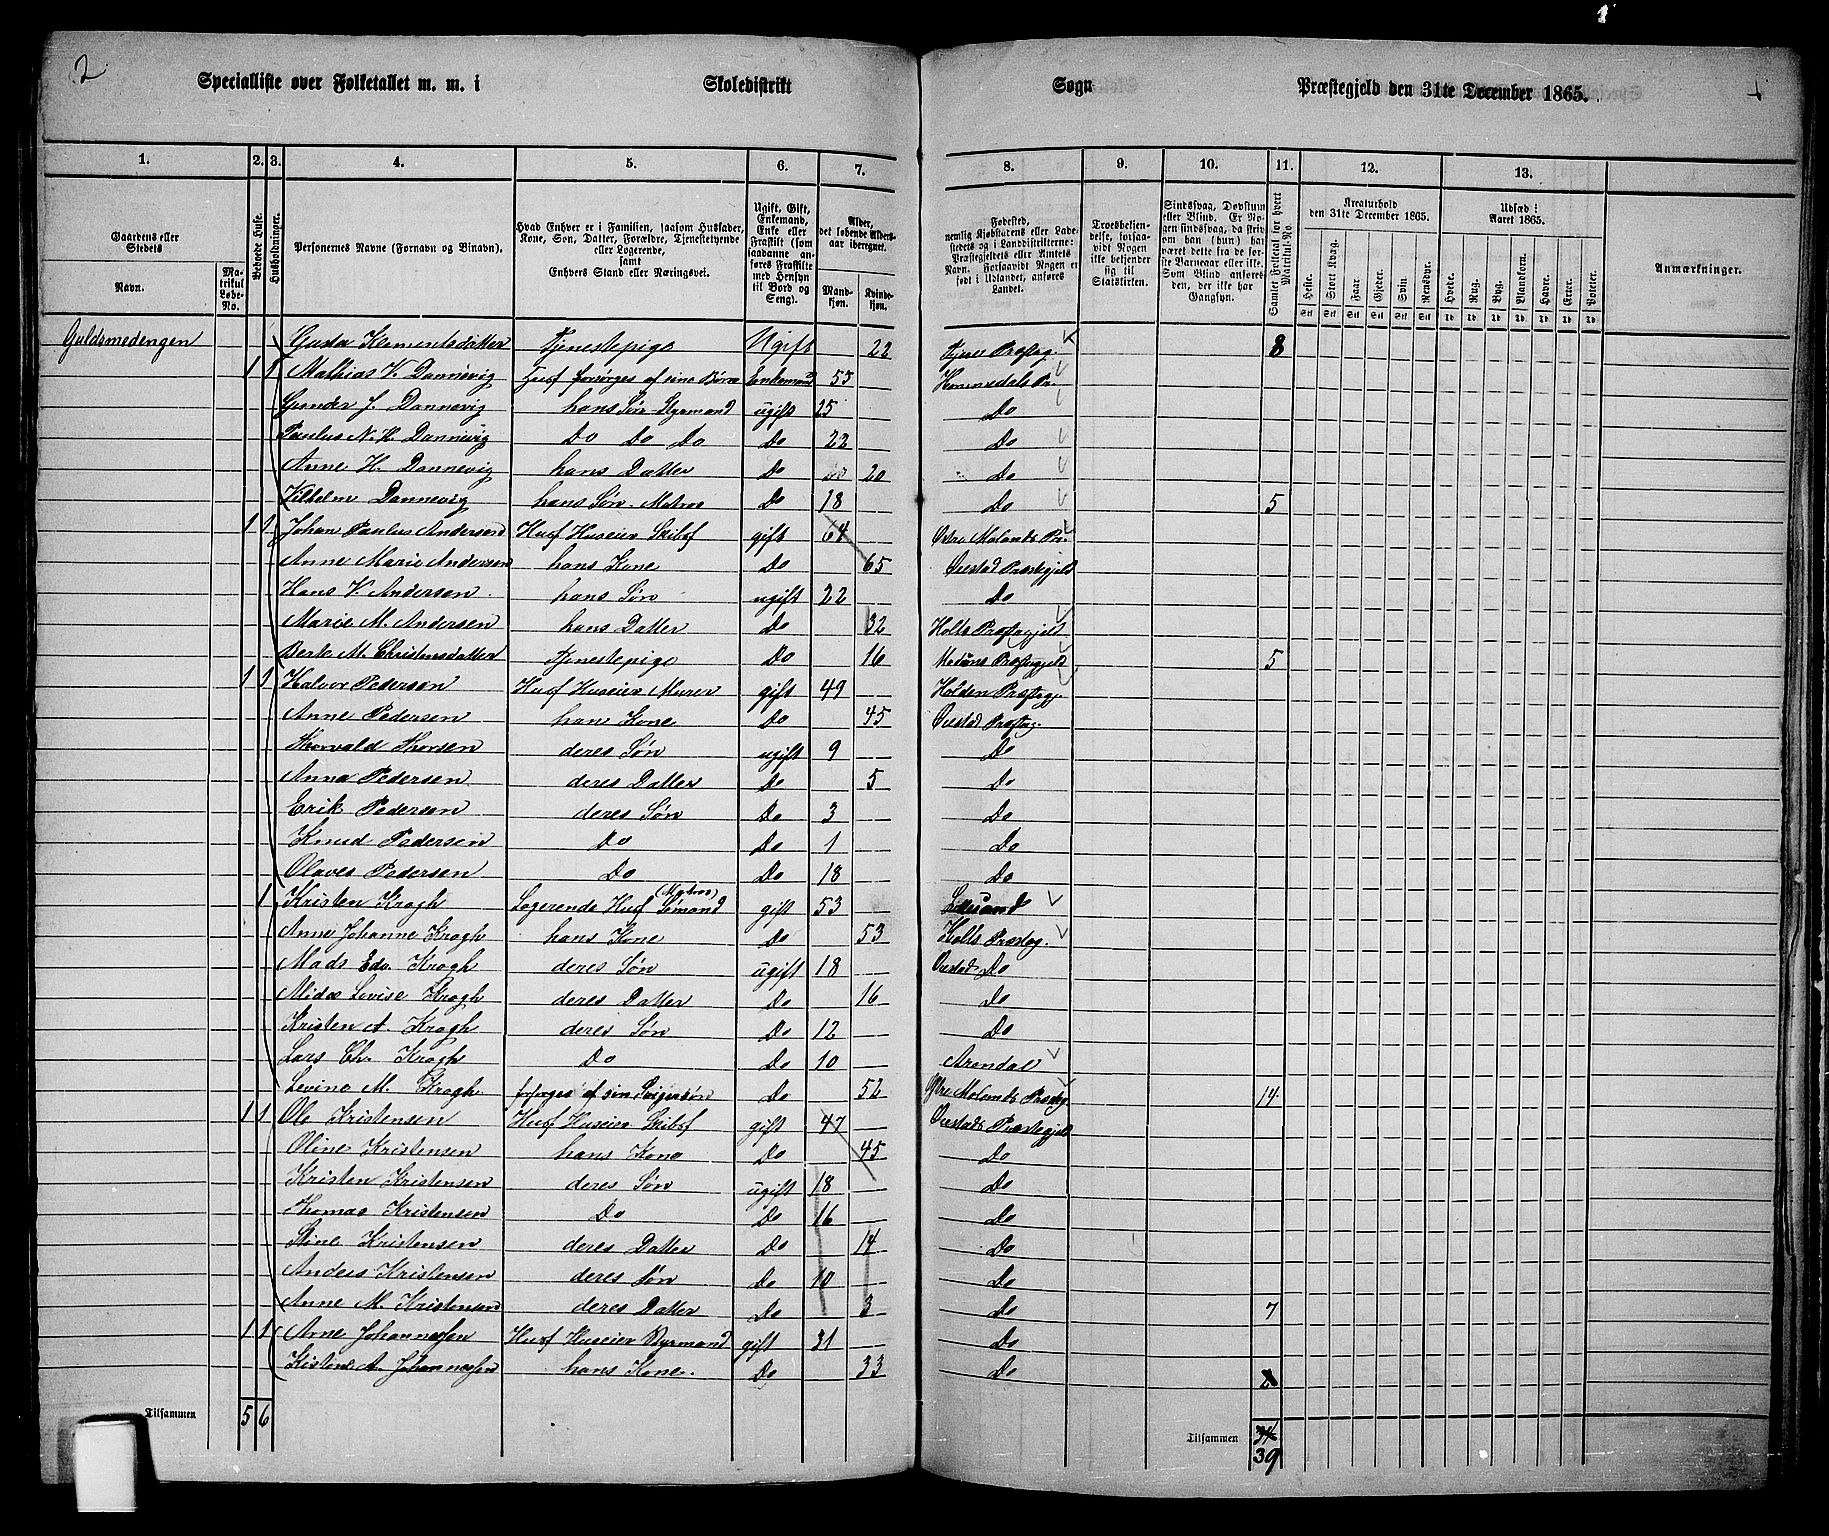 2
Specialliste over Folketallet m. m. i Skoledistrikt Sogn Præstegjeld den 31te December 1865.
1. 2. 3. 4. 5. 6. 7. 8. 9. 10. 11. 12. 13.
Gaardens eller Stedets
Navn. Matrikul Løbe-No.
Beboede Huse.
Husholdninger.
Personernes Navne (Fornavn og Binavn).
Hvad Enhver er i Familien, saasom Husfader, Kone, Søn, Datter, Forældre, Tjenestetyende eller Logerende, samt Enhvers Stand eller Næringsvei.
Ugift, Gift, Enkemand, Enke eller Fraskilt (som saadanne anføres Fraskilte med Hensyn til Bord og Seng).
Alder, det løbende Aldersaar iberegnet.
Mandkjøn. Kvindekjøn.
Fødested, nemlig Kjøbstadens eller Ladestedets og i Landdistrikterne: Præstegjeldets eller Amtets Navn. Forsaavidt Nogen er født i Udlandet, anføres Landet.
Troesbekjendelse, forsaavidt Nogen ikke bekjender sig til Statskirken.
Sindssvag, Døvstum eller Blind. Er Nogen sindssvag, da skrives, om han (hun) har været dette fra de første Barneaar eller ikke. Som Blind anføres den, der ikke har Gangsyn.
Samlet Folketal for hvert Matrikul-No.
Kreaturhold den 31te December 1865.
Heste. Stort Kvæg. Faar. Gjeder. Svin. Rensdyr.
Udsæd i Aaret 1865.
Hvede. Rug. Byg. Blandkorn. Havre. Erter. Poteter.
Anmærkninger.
Guldsmedengen Gusta Klementsdatter Tjenestepige Ugift 22 Præsteg. 8
1 1 Mathias K. Dannevig Husf forsørges af sine Børn Enkemand 55
Gunder J. Dannevig hans Søn Styrmand ugift 25 Do
Paulus N. H. Dannevig Do Do Do Do 22 Do
Anne H. Dannevig hans Datter Do 20 Do
Vilhelm Dannevig hans Søn. Matros Do 18 Do 5
1 1 Johan Paulus Andersen Husf Huseier Skibsf gift 64 Østre Molands Pr.
Anne Marie Andersen hans Kone Do 65 Øiestad Præstegjeld
Hans V. Andersen hans Søn ugift 22 Do
Marie M. Andersen hans Datter Do 32 Holts Præstegjeld
Berte M. Christensdatter Tjenestepige Do 16 Præstegjeld 5
1 1 Halvor Pedersen Husf Huseier Murer gift 49 Holden Præstegj
Anne Pedersen hans Kone Do 45 Øiestad Præsteg.
Thorvald Thorsen deres Søn ugift 9 Do
Anna Pedersen deres Datter Do 5 Do
Erik Pedersen deres Søn Do 3 Do
Knud Pedersen Do Do 1 Do
Olaves Pedersen Do Do 18 Do
1 Kristen Krogh Logerende Husf Sømand (Matros) gift 53 Lillesand
Anne Johanne Krogh hans Kone Do 53 Holts Præsteg.
Mads Edv. Krogh deres Søn ugift 18 Øiestad Do
Lovise Krogh deres Datter Do 16 Do
Kristen A. Krogh deres Søn Do 12 Do
Lars Chr. Krogh Do Do 10 Arendal
Levine M. Krogh forsørges af sin Svigersøn Do 52 Østre Molands Præsteg. 14
1 1 Ole Kristensen Husf Huseier Skibsf gift 47 Øiestads Præstegjeld
Oline Kristensen hans Kone Do 45 Do
Kristen Kristensen deres Søn ugift 18 Do
Thomas Kristensen Do Do 16 Do
Stine Kristensen deres Datter Do 14 Do
Anders Kristensen deres Søn Do 10 Do
Anne M. Kristensen deres Datter Do 3 Do 7
1 1 Arne Johannesen Husf Huseier Styrmand gift 31 Do
Kistine A. Johannesen hans Kone. Do 33 Do 2
Tilsammen 5 6 Tilsammen 34
39